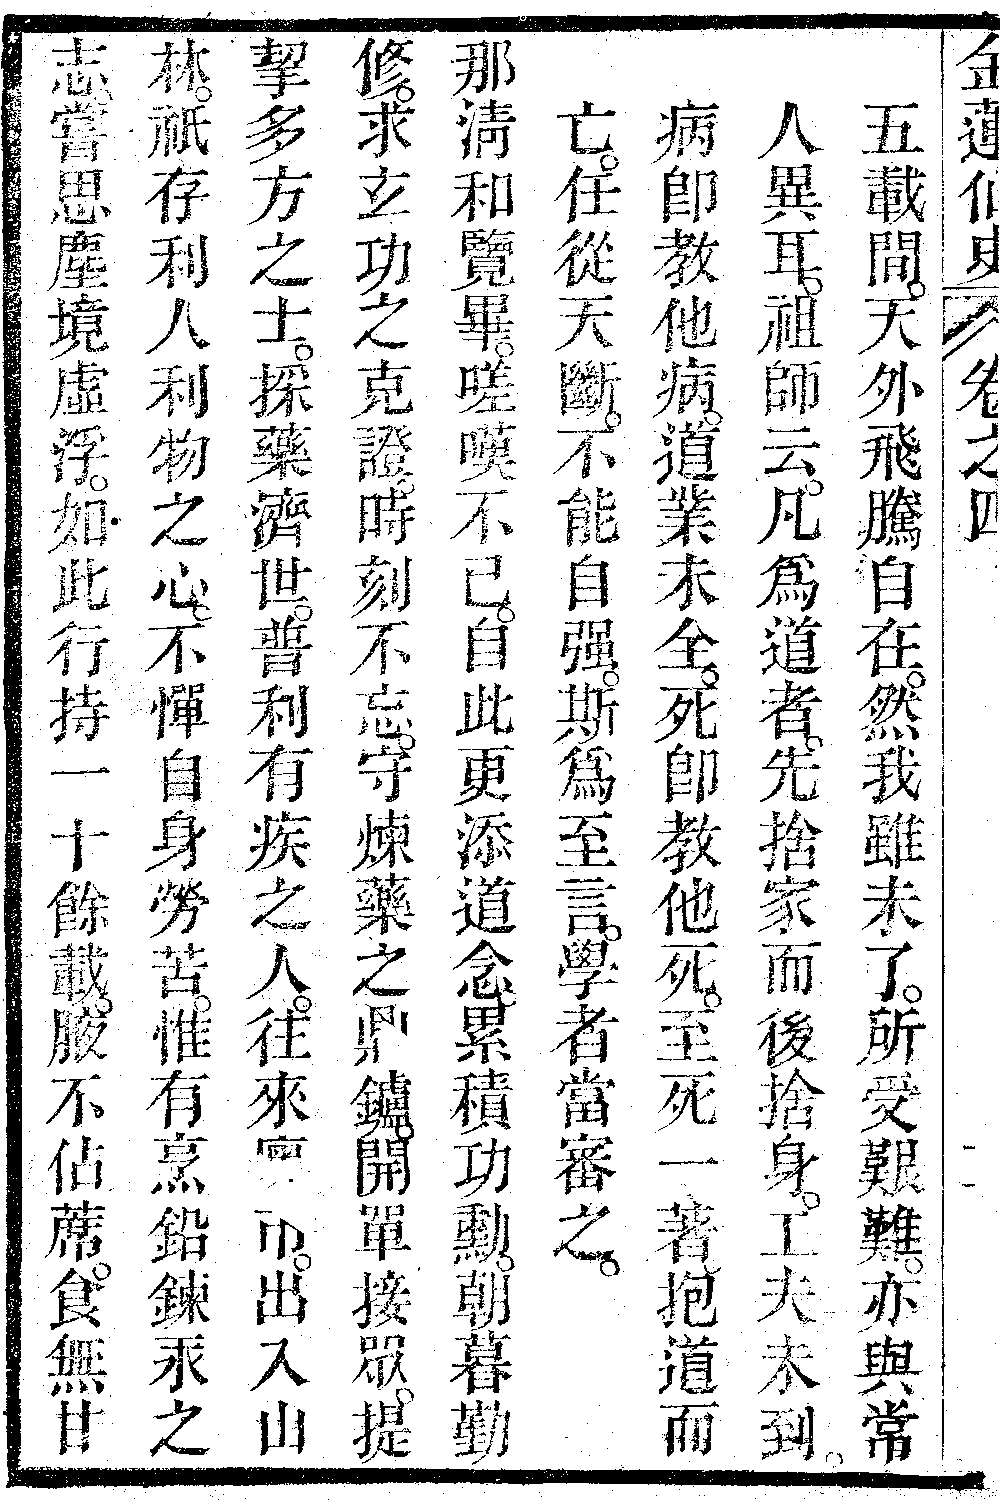 金蓮仙史 卷之四
五載間。天外飛騰自在。然我雖未了。所受艱難。亦與常
人異耳。祖師云。凡爲道者。先捨家而後捨身。工夫未到。
病卽教他病。道業未全。死卽教他死。至死一著。抱道而
亡。任從天斷。不能自强。斯爲至言。學者當審之。
那淸和覽畢。嗟嘆不已。自此更添道念。累積功勳。朝暮勤
修。求立功之克證。時刻不忘。守煉藥之鼎鑪。開單接眾。提
挈多方之士。採藥濟世。普利有疾之人。往來市。出入山
林。祇存利人利物之心。不憚自身勞苦。惟有烹鉛鍊汞之
志。嘗思塵境虛浮。如此行持一十餘載。脥不佔蓆。食無甘